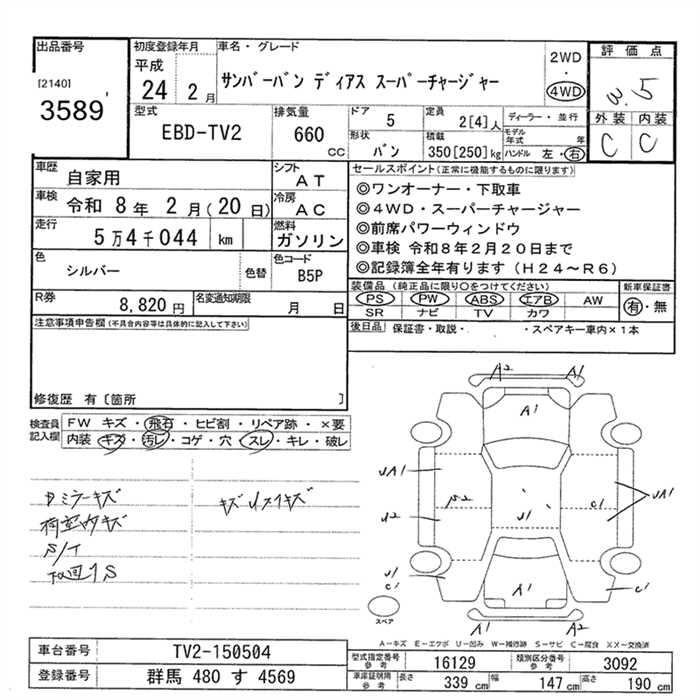 出品番号
[2140]
3589
初度登録年月
平成
24 2 月
車名・グレード
サンバーバン ディアス スーパーチャージャー
2WD
・
4WD
評価点
3.5
外装 内装
C C
型式
EBD-TV2
排気量
660
CC
ドア 5
形状 バン
定員 2[4]人
積載 350[250]kg
ディーラー・並行
モデル年式 年
ハンドル 左・右
車歴 自家用
車検 令和 8 年 2 月(20 日)
走行 5万4千044 km
色 シルバー 色替
シフト AT
冷房 AC
燃料 ガソリン
色コード B5P
R券 8,820 円
名変通知期限 月 日
セールスポイント(正常に機能するものに限ります)
◎ワンオーナー・下取車
◎4WD・スーパーチャージャー
◎前席パワーウィンドウ
◎車検 令和8年2月20日まで
◎記録簿全年有ります(H24~R6)
装備品(純正品に限り○をつけてください)
PS PW ABS エアB AW
SR ナビ TV カワ
新車保証書
有・無
後日品 保証書・取説・ ・スペアキー車内×1本
注意事項申告欄(不具合内容等は具体的に記入して下さい)
修復歴 有[箇所 ]
検査員記入欄
FW キズ・飛石・ヒビ割・リペア跡・×要
内装 キズ・汚レ・コゲ・穴・スレ・キレ・破レ
ミラーキズ
荷室内キズ
S/T
キズ
A2 A1
A1
UA1
U2
C1
UA1
U1
U1
C1
A1
C1
A2 A2
スペア
A-キズ E-エクボ U-凹み W-補修跡 S-サビ C-腐食 XX-交換済
車台番号 TV2-150504
登録番号 群馬 480 す 4569
型式指定番号 参考 16129
類別区分番号 参考 3092
車庫証明用 参考 長さ 339 cm 幅 147 cm 高さ 190 cm